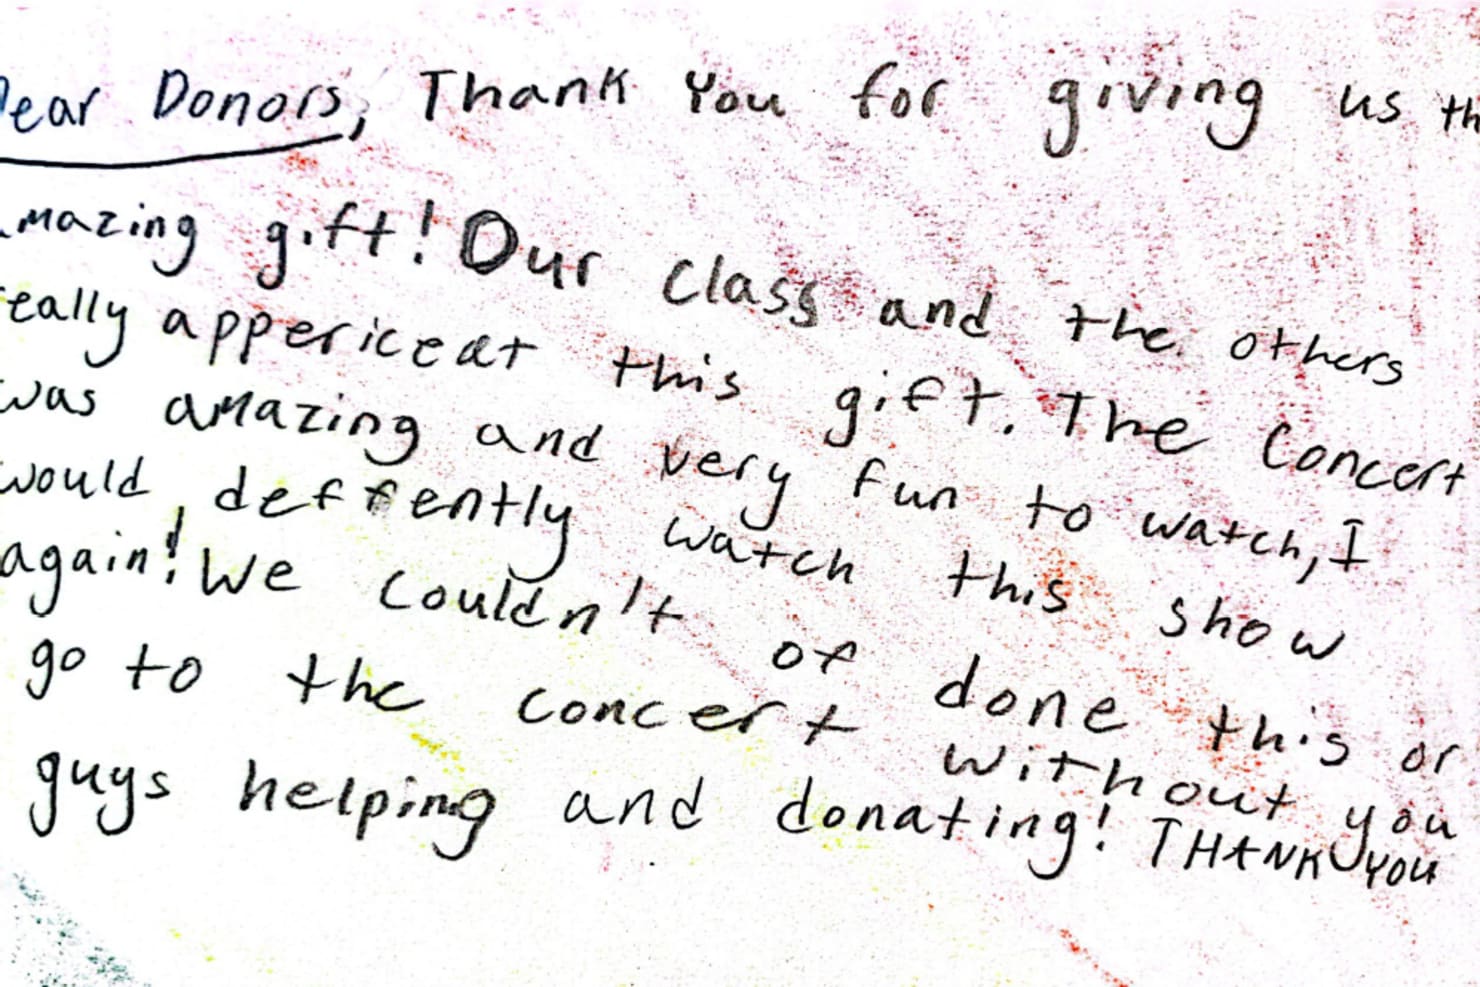 Dear Donors, Thank You for giving us th
amazing gift! Our class and the others
really appericeat this gift. The Concert
was amazing and very fun to watch, I
would deffently watch this show
again! We couldn't of done this or
go to the concert without you
guys helping and donating! THANK YOU